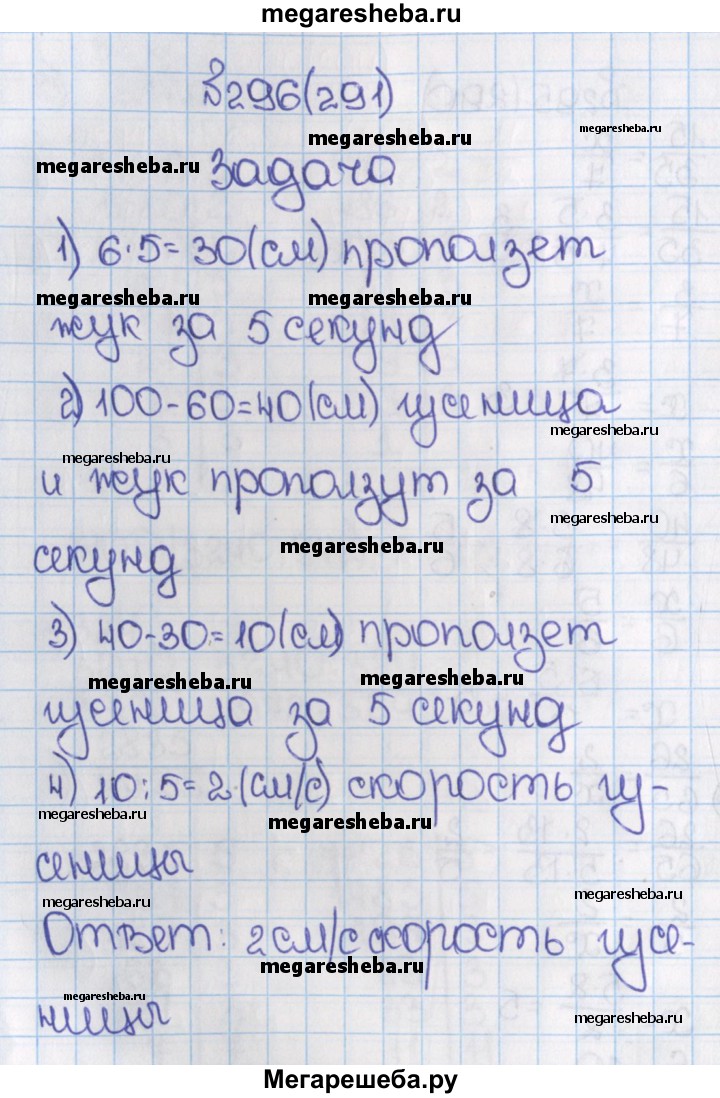 megaresheba.ru
№296(291)
megaresheba.ru
megaresheba.ru
megaresheba.ru
Задача
1) 6·5=30(см) проползет
megaresheba.ru
megaresheba.ru
жук за 5 секунд
2) 100-60=40(см) гусеница
megaresheba.ru
megaresheba.ru
и жук проползут за 5
megaresheba.ru
megaresheba.ru
секунд
3) 40-30=10(см) проползет
megaresheba.ru
megaresheba.ru
гусеница за 5 секунд
4) 10:5=2(см/с) скорость гу-
megaresheba.ru
megaresheba.ru
сеницы
megaresheba.ru
megaresheba.ru
Ответ: 2см/с скорость гусе-
megaresheba.ru
megaresheba.ru
ницы
megaresheba.ru
Мегарешеба.ру